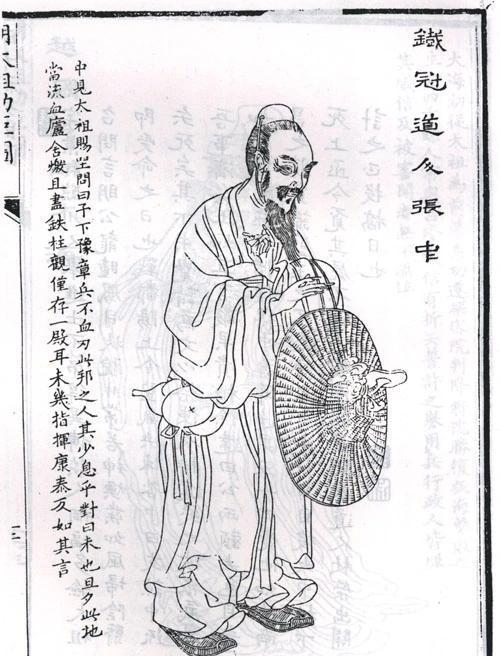 鐵冠道人張中
中見太祖賜坐問曰予下豫章兵不血刃此邦之人其少息乎對曰未也旦夕此地
當流血廬舍燬且盡鉄柱觀僅存一殿耳未幾指揮康泰反如其言
明太祖功臣圖